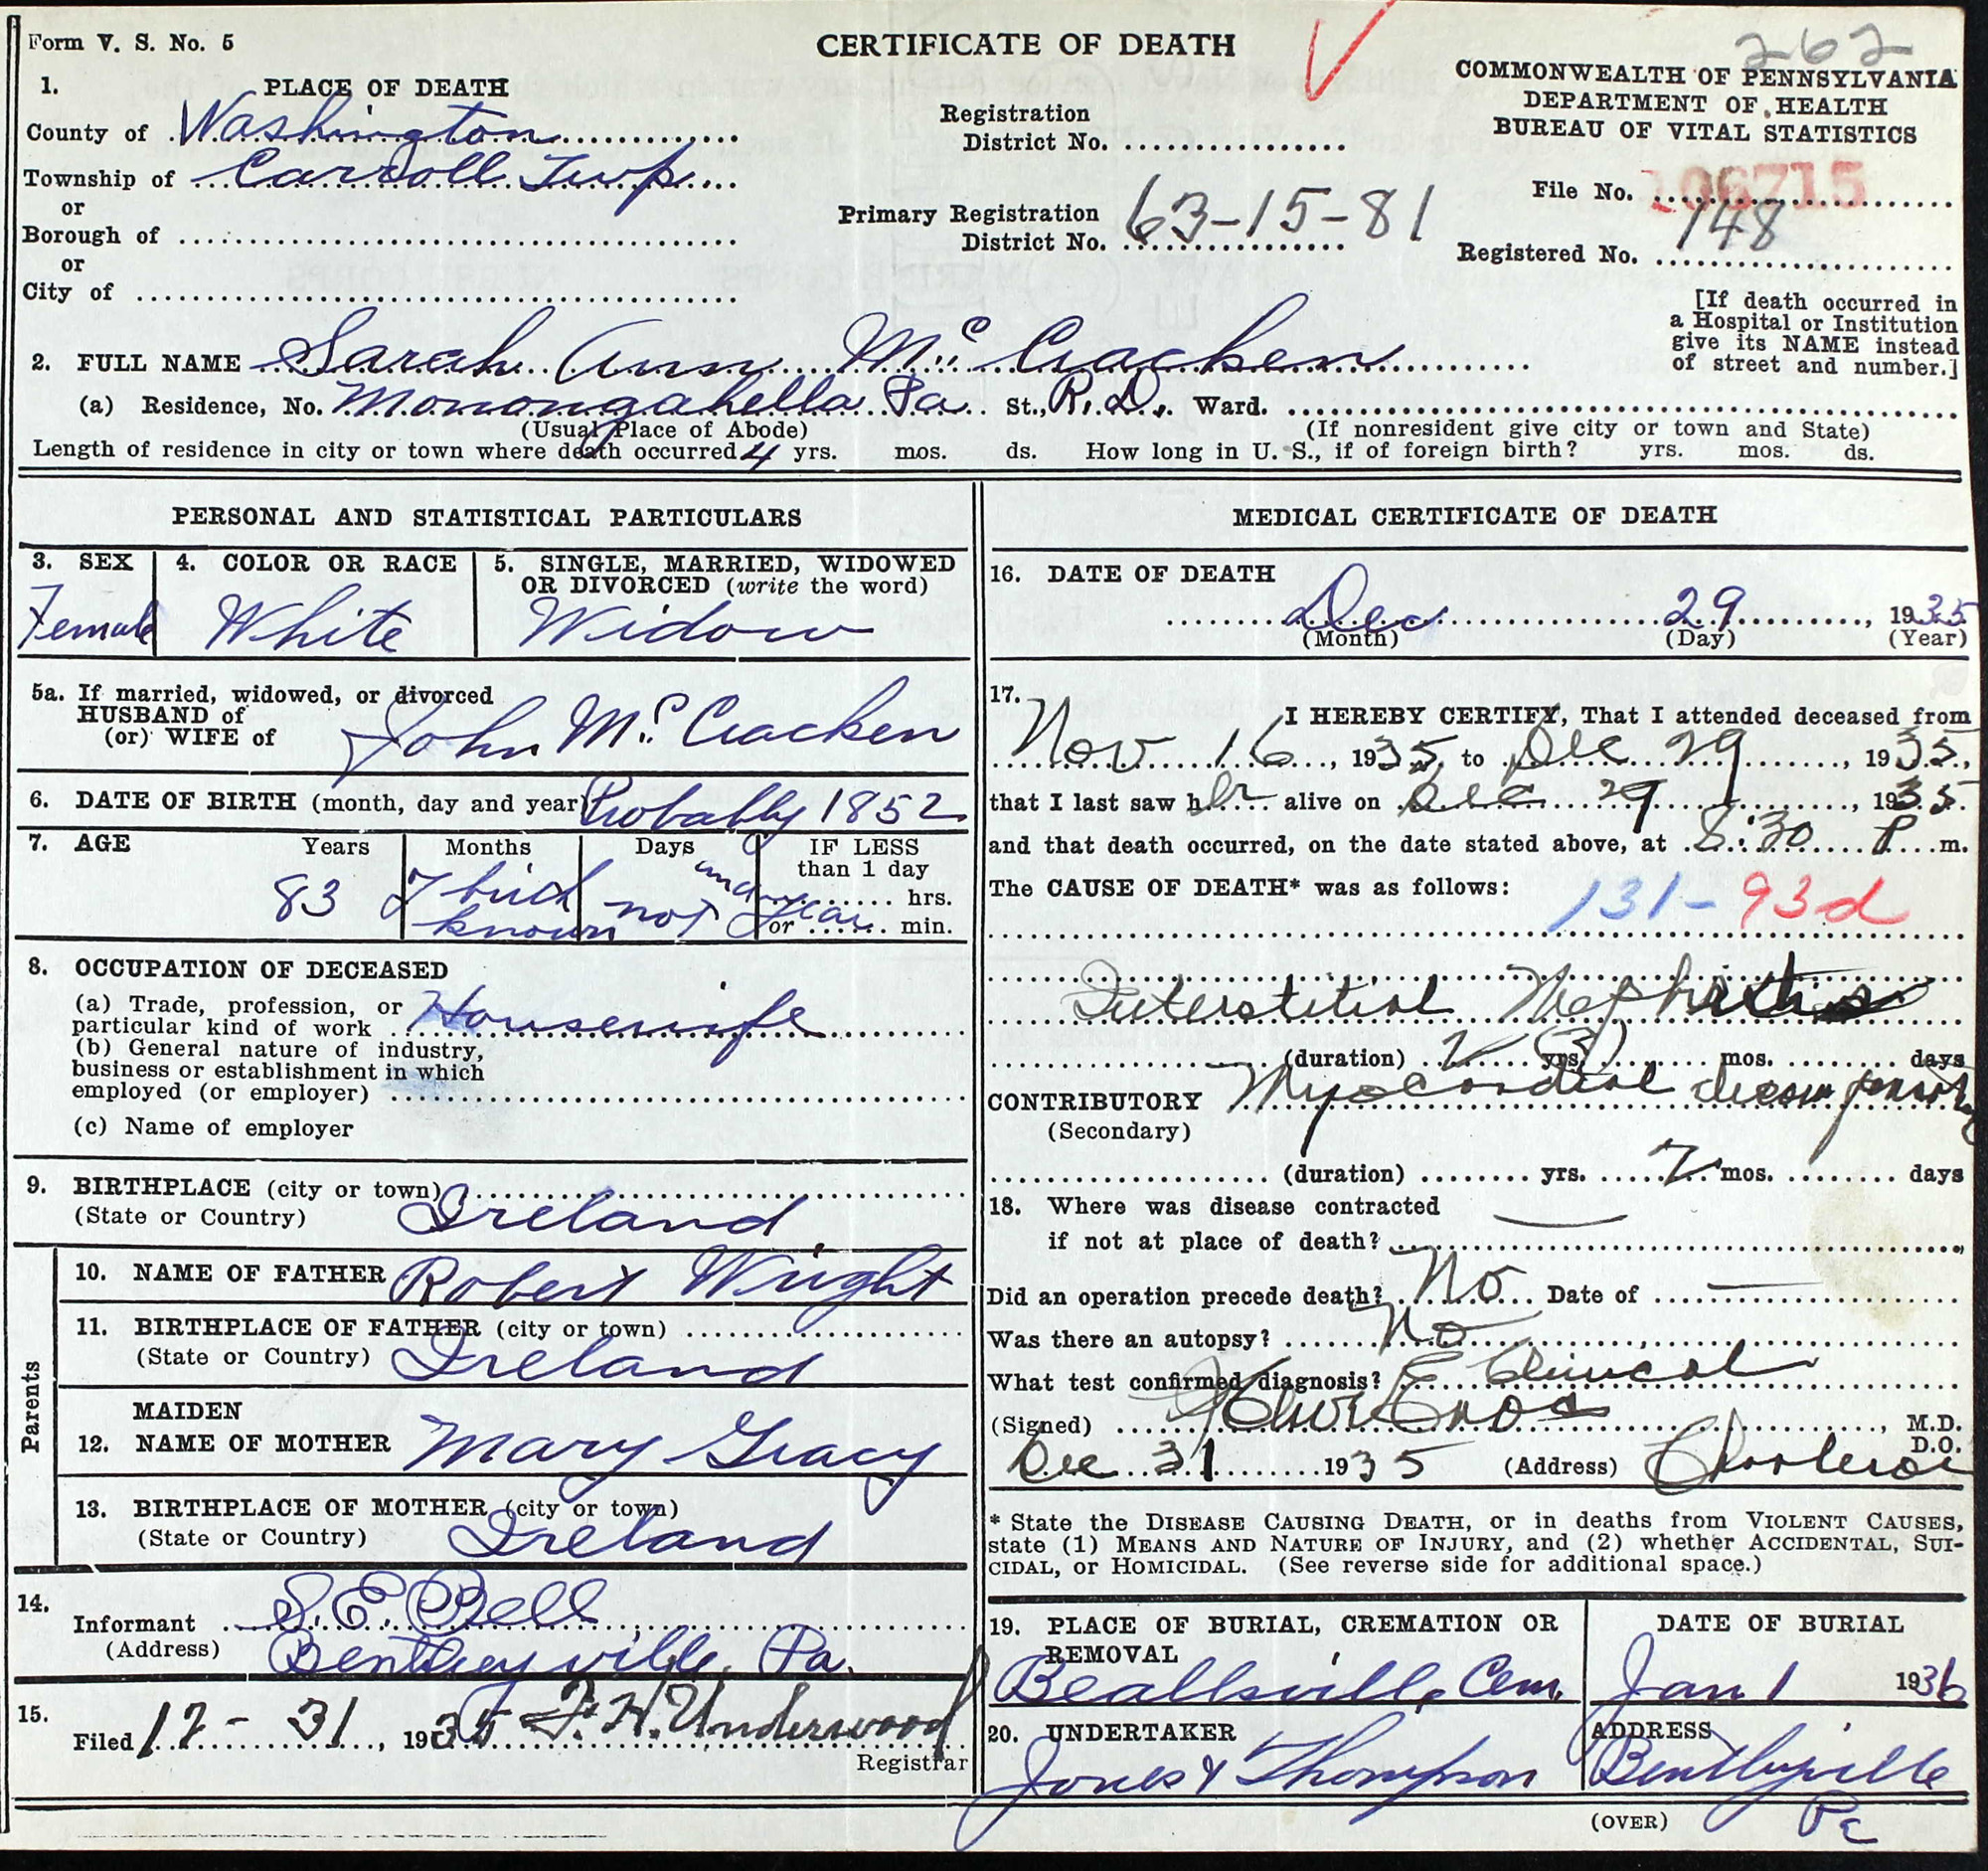 Form V. S. No. 5
CERTIFICATE OF DEATH
262
COMMONWEALTH OF PENNSYLVANIA
DEPARTMENT OF HEALTH
BUREAU OF VITAL STATISTICS
1. PLACE OF DEATH
County of Washington
Township of Carroll Twp.
or
Borough of
or
City of
Registration
District No.
Primary Registration
District No. 63-15-81
File No. 106715
Registered No. 148
[If death occurred in
a Hospital or Institution
give its NAME instead
of street and number.]
2. FULL NAME Sarah Ann McCracken
(a) Residence, No. Monongahella Pa St., R.D. Ward.
(Usual Place of Abode) (If nonresident give city or town and State)
Length of residence in city or town where death occurred 4 yrs. mos. ds. How long in U. S., if of foreign birth? yrs. mos. ds.
PERSONAL AND STATISTICAL PARTICULARS
3. SEX
Female
4. COLOR OR RACE
White
5. SINGLE, MARRIED, WIDOWED
OR DIVORCED (write the word)
Widow
5a. If married, widowed, or divorced
HUSBAND of
(or) WIFE of John McCracken
6. DATE OF BIRTH (month, day and year) Probably 1852
7. AGE Years Months Days IF LESS
than 1 day
83
hrs.
known not
or min.
8. OCCUPATION OF DECEASED
(a) Trade, profession, or
particular kind of work Housewife
(b) General nature of industry,
business or establishment in which
employed (or employer)
(c) Name of employer
9. BIRTHPLACE (city or town)
(State or Country) Ireland
Parents
10. NAME OF FATHER Robert Wright
11. BIRTHPLACE OF FATHER (city or town)
(State or Country) Ireland
MAIDEN
12. NAME OF MOTHER Mary Gracy
13. BIRTHPLACE OF MOTHER (city or town)
(State or Country) Ireland
14.
Informant S. E. Bell
(Address) Bentleyville, Pa.
15.
Filed 12-31, 1935 F. H. Underwood
Registrar
MEDICAL CERTIFICATE OF DEATH
16. DATE OF DEATH
Dec 29, 1935
(Month) (Day) (Year)
17. I HEREBY CERTIFY, That I attended deceased from
Nov 16, 1935, to Dec 29, 1935,
that I last saw her alive on Dec 29, 1935.
and that death occurred, on the date stated above, at 8:30 P. m.
The CAUSE OF DEATH* was as follows:
131-93d
Interstitial Nephritis
(duration) 2 yrs. mos. days
CONTRIBUTORY Myocardial
(Secondary)
(duration) yrs. 2 mos. days
18. Where was disease contracted
if not at place of death?
Did an operation precede death? No Date of —
Was there an autopsy? No
What test confirmed diagnosis? Clinical
(Signed) Enos, M.D.
D.O.
Dec 31 1935 (Address) Charleroi
* State the DISEASE CAUSING DEATH, or in deaths from VIOLENT CAUSES,
state (1) MEANS AND NATURE OF INJURY, and (2) whether ACCIDENTAL, SUI-
CIDAL, or HOMICIDAL. (See reverse side for additional space.)
19. PLACE OF BURIAL, CREMATION OR
REMOVAL
Beallsville Cem.
DATE OF BURIAL
Jan 1 1936
20. UNDERTAKER
Jones & Thompson
ADDRESS
Bentleyville
Pa
(OVER)